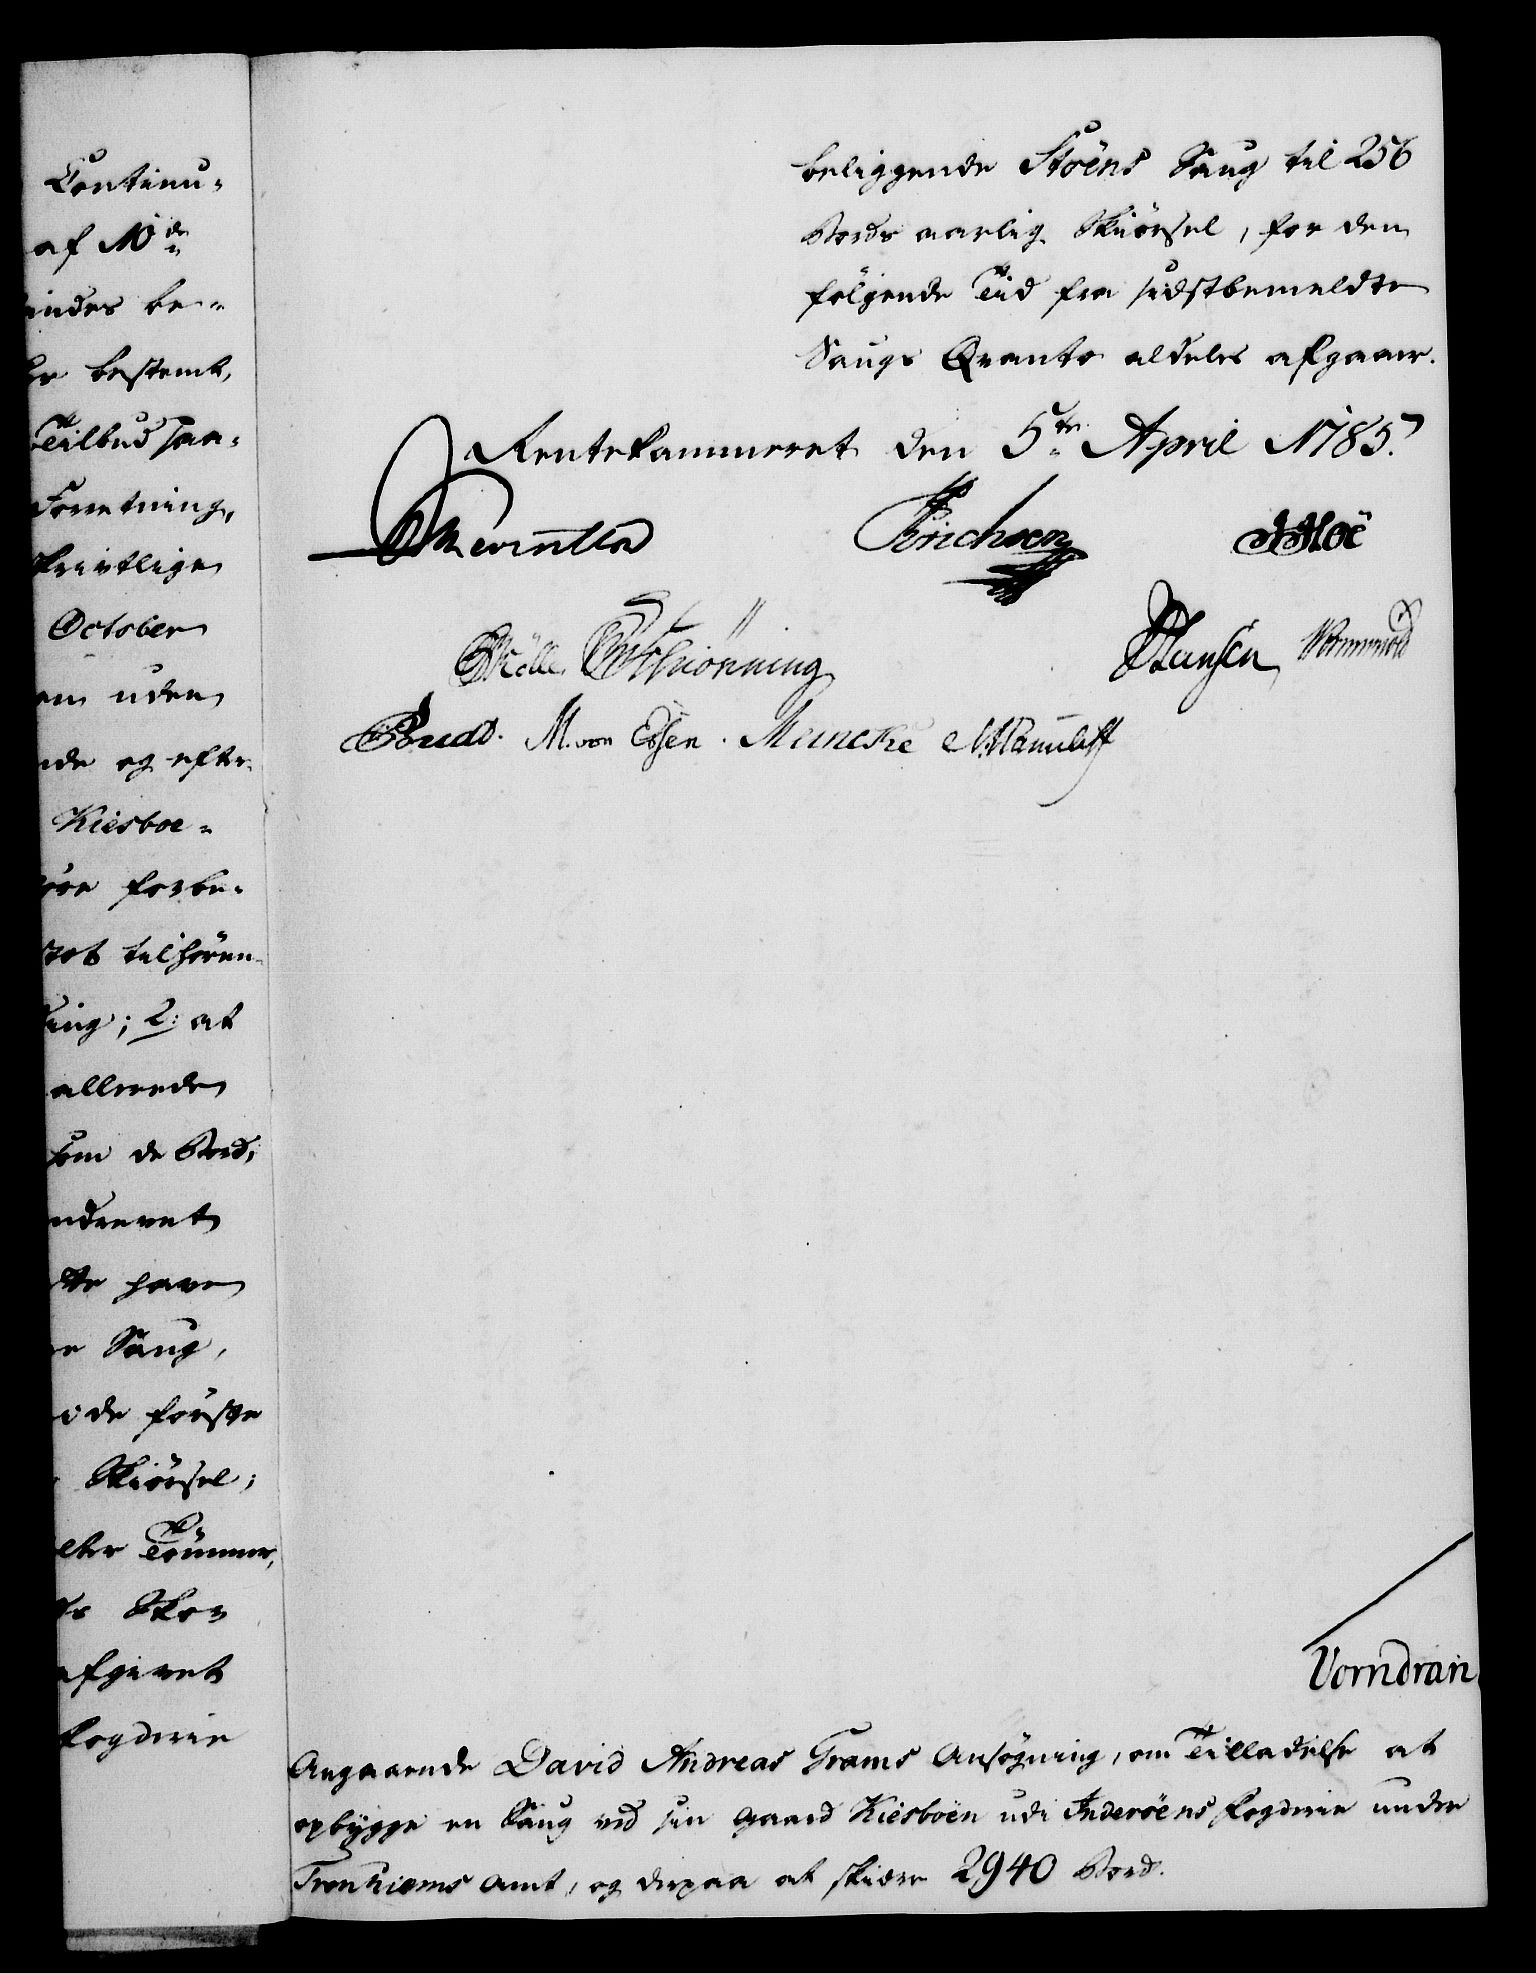 Continu-
af No de
indes be-
bestemt,
Tilbud saa-
Forretning,
skriftlige
October
uden
og efter-
Kiesboe-
forbe-
tilhøren-
2: at
allerede
som de Bord,
have
Saug,
i de første
Skiørsel;
Tømmer,
Skov
afgivet
Fogderie
beliggende Støens Saug til 256
Bords aarlig Skiørsel, for den
følgende Tid fra sidstbemeldte
Saugs Qvanto aldeles afgaaer.
Rentekammeret den 5te April 1785.
Reventlow Erichsen Hoë
Möller Schiönning Hansen Wormwold
Budd. M. von Essen. Meincke
Vorndran
Angaaende David Andreas Grams Ansøgning, om Tilladelse at
opbygge en Saug ved sin Gaard Kiesboen udi Inderøens Fogderie under
Tronhiems Amt, og derpaa at skiære 2940 Bord.